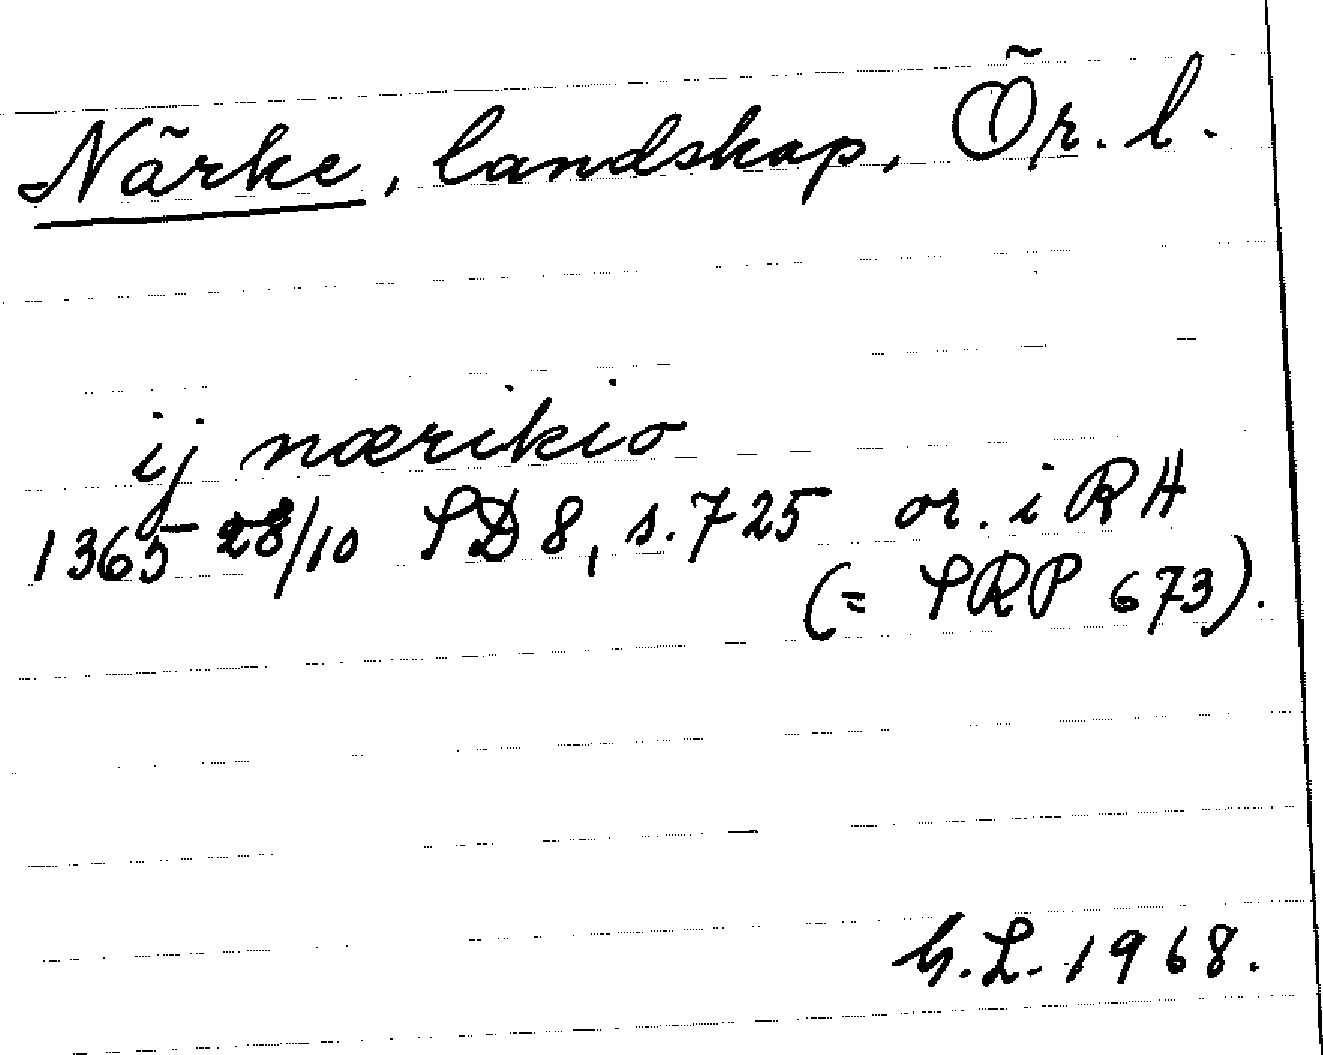 Närke, landskap, Ör. l.
ij nærikio
1365 28/10 SD 8, s. 725 or. i RA
(= SRP 673).
G. L. 1968.